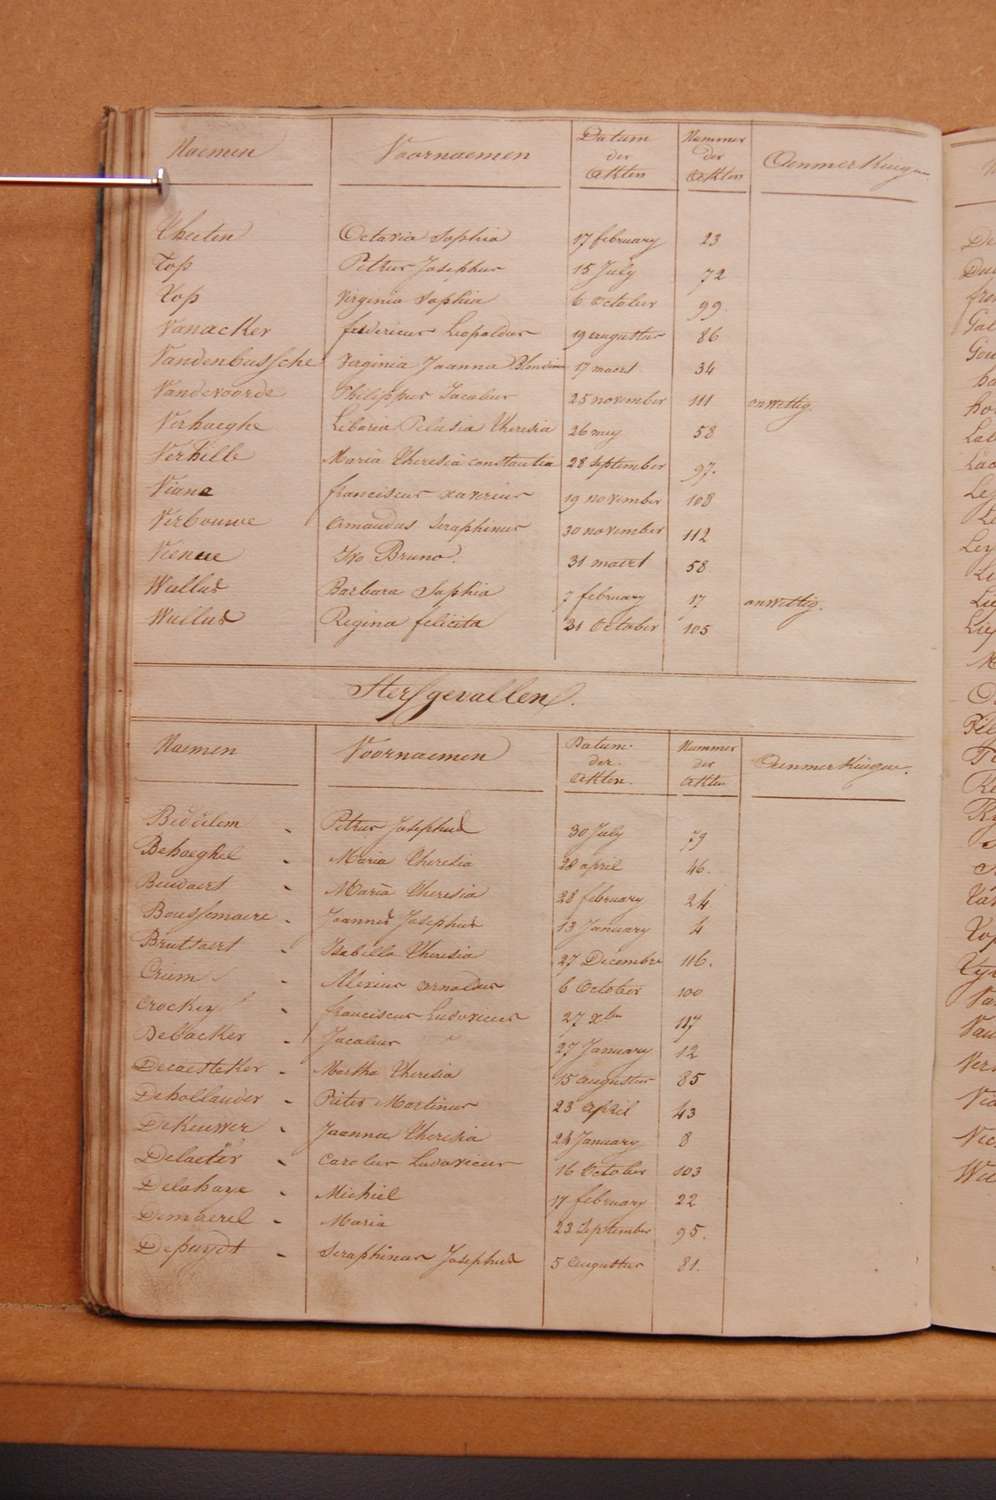 Naemen Voornaemen Datum der Akten Nummer der Akten Aenmerkingen
Theeten Octavia Sophia 17 february 23
Top Petrus Josephus 15 July 72
Top Virginia Sophia 6 October 99
Vanacker fredericus Leopoldus 19 augustus 86
Vandenbussche Virginia Joanna Blondine 17 maert 34
Vandevoorde Philippus Jacobus 25 november 111 onwettig.
Verhaeghe Liboria Pelasia Theresia 26 mey 58
Verhille Maria Theresia constantia 28 september 97.
Viane franciscus xaverius 19 november 108
Verbouwe Amandus Seraphinus 30 november 112
Vienne Ivo Bruno. 31 maert 58
Wullus Barbara Sophia 7 february 17 onwettig.
Wullus Regina felicita 31 October 105
Sterfgevallen.
Naemen Voornaemen Datum der Akten. Nummer der Akten Aenmerkingen.
Beddelem - Petrus Josephus 30 July 79
Behaeghel - Maria Theresia 28 april 46.
Beudaert - Maria Theresia 28 february 24
Boussemaere - Joannes Josephus 13 January 4
Bruttaert - Isabella Theresia 27 Decembre 116.
Crium - Alexius Arnoldus 6 October 100
Crockey - franciscus Ludovicus 27 xber 117
Debacker - Jacobus 27 January 12
Decaesteker - Martha Theresia 15 augustus 85
Dehollander - Pieter Martinus 23 april 43
Dekeuwer - Joanna Theresia 24 January 8
Delaeter - Carolus Ludovicus 16 October 103
Delahaye - Michiel 17 february 22
Demaerel - Maria 23 September 95.
Depuydt - Seraphinus Josephus 5 augustus 81.